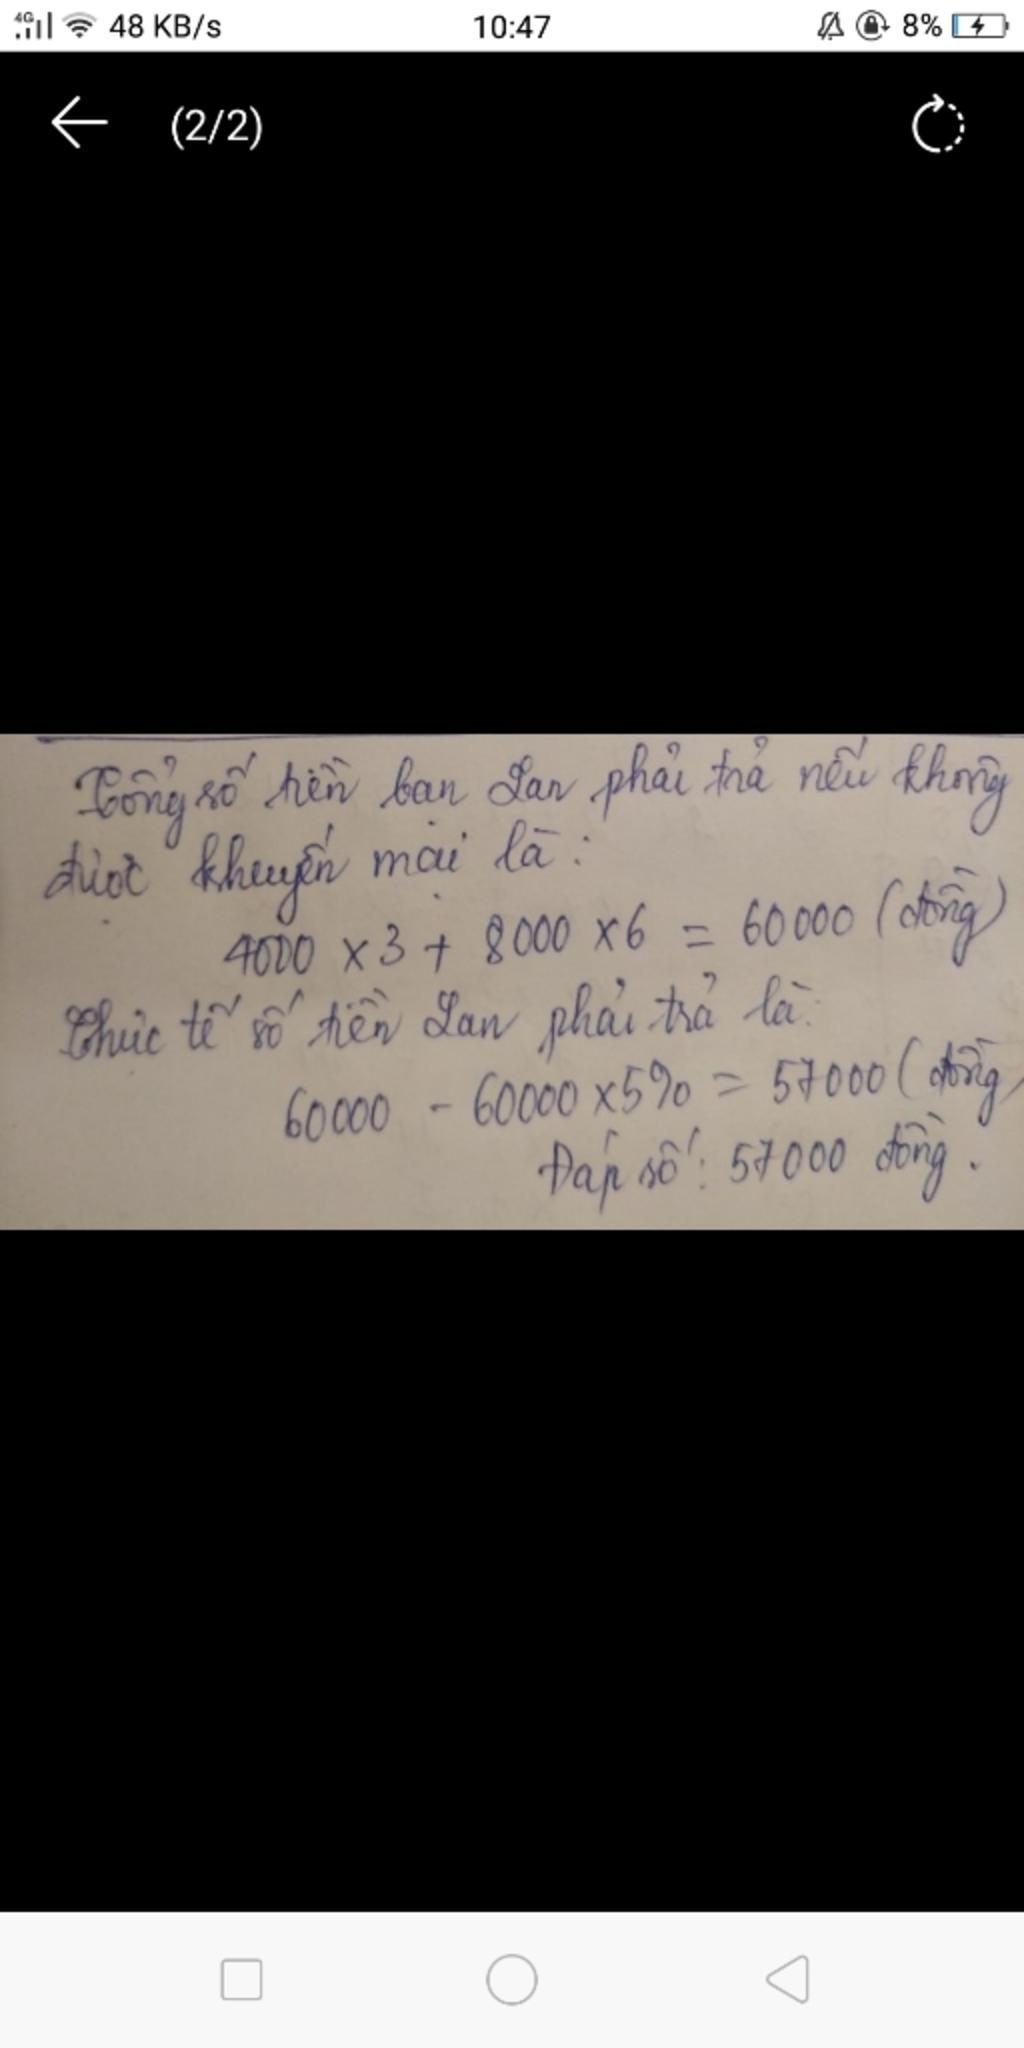 4G 48 KB/s 10:47 8%
(2/2)
Tổng số tiền bạn Lan phải trả nếu không
được khuyến mại là:
4000 x 3 + 8000 x 6 = 60000 (đồng)
Thực tế số tiền Lan phải trả là:
60000 - 60000 x 5% = 57000 (đồng)
Đáp số: 57000 đồng.